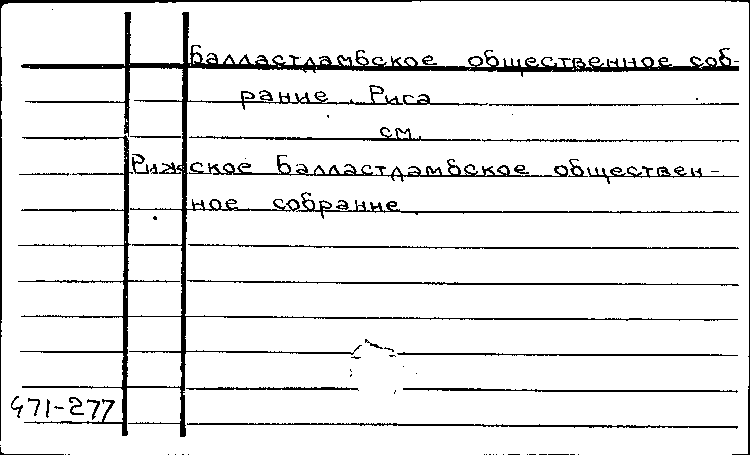 Балластдамбское общественное соб-
рание. Рига
см.
Рижское Балластдамбское обществен-
ное собрание
471-277